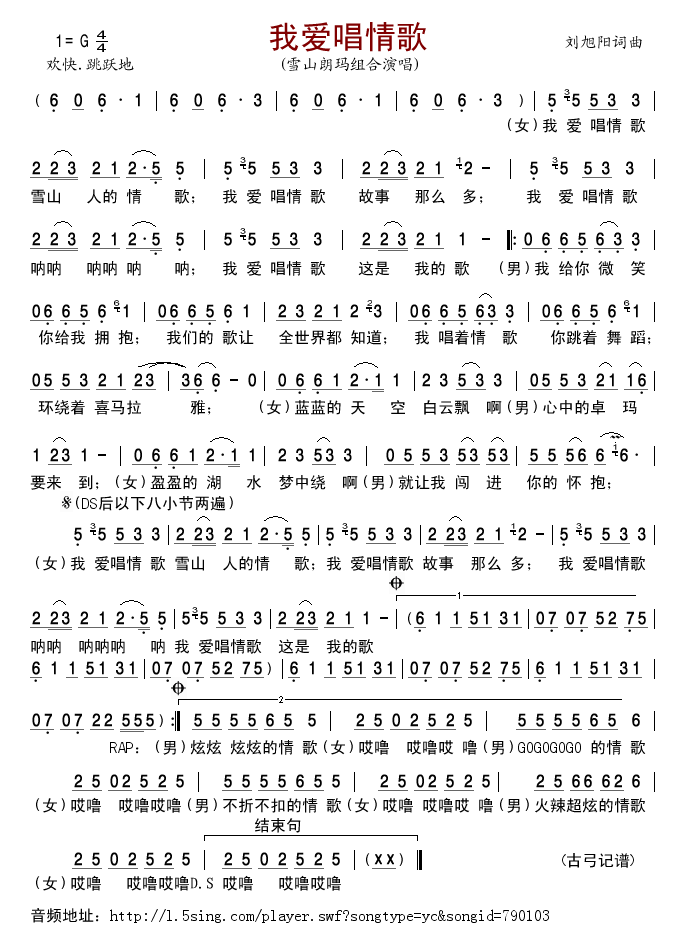 我爱唱情歌
1= G 4/4
刘旭阳词曲
欢快.跳跃地
(雪山朗玛组合演唱)
( 6 0 6 · 1 | 6 0 6 · 3 | 6 0 6 · 3 | 6 0 6 · 3 ) | 5 3 5 5 3 3 |
(女)我 爱 唱情 歌
2 2 3 2 1 2 · 5 5 | 5 3 5 5 3 3 | 2 2 3 2 1 1 2 - | 5 3 5 5 3 3 |
雪山 人的 情 歌; 我 爱 唱情 歌 故事 那么 多; 我 爱 唱情歌
2 2 3 2 1 2 · 5 5 | 5 3 5 5 3 3 | 2 2 3 2 1 1 - ‖: 0 6 6 5 6 3 3 |
呐呐 呐呐 呐 呐; 我 爱 唱情 歌 这是 我的 歌 (男)我 给你 微 笑
0 6 6 5 6 6 1 | 0 6 6 5 6 1 | 2 3 2 1 2 2 3 | 0 6 6 5 63 3 | 0 6 6 5 6 6 1 |
你给我 拥 抱; 我们的 歌让 全世界都 知道; 我 唱着情 歌 你跳着 舞 蹈;
05 53 2 1 23 | 3 6 6 - 0 | 0 6 6 1 2 · 1 1 | 2 3 53 3 | 05 53 21 16 |
环绕着 喜马拉 雅; (女)蓝蓝的 天 空 白云飘 啊(男)心中的卓 玛
1 23 1 - | 0 6 6 1 2 · 1 1 | 2 3 53 3 | 05 53 53 53 | 5 5 56 6 i 6 · |
要来 到; (女)盈盈的 湖 水 梦中绕 啊(男)就让我 闯 进 你的 怀 抱;
𝄋(DS后以下八小节两遍)
5 3 5 5 3 3 | 2 23 2 1 2 · 5 5 | 5 3 5 5 3 3 | 2 23 2 1 1 2 - | 5 3 5 5 3 3 |
(女)我 爱唱情 歌 雪山 人的情 歌; 我 爱唱情歌 故事 那么 多; 我 爱唱情歌
𝄌 1
2 23 2 1 2 · 5 5 | 5 3 5 5 3 3 | 2 23 2 1 1 - | (6 1 1 51 31 | 07 07 52 75 |
呐呐 呐呐呐 呐 我 爱唱情歌 这是 我的歌
6 1 1 51 31 | 07 07 52 75) | 6 1 1 51 31 | 07 07 52 75 | 6 1 1 51 31 |
𝄌 2
07 07 22 555) :‖ 5 5 5 5 6 5 5 | 2 5 0 2 5 2 5 | 5 5 5 5 6 5 6 |
RAP: (男)炫炫 炫炫的情 歌(女)哎噜 哎噜哎 噜(男)GOGOGOGO 的情 歌
2 5 02 5 2 5 | 5 5 5 5 6 5 5 | 2 5 02 5 2 5 | 2 5 66 62 6 |
(女)哎噜 哎噜哎噜(男)不折不扣的情 歌(女)哎噜 哎噜哎 噜(男)火辣超炫的情歌
结束句
2 5 0 2 5 2 5 | 2 5 0 2 5 2 5 | (x x) ‖
(古弓记谱)
(女)哎噜 哎噜哎噜D.S 哎噜 哎噜哎噜
音频地址: http://l.5sing.com/player.swf?songtype=yc&songid=790103